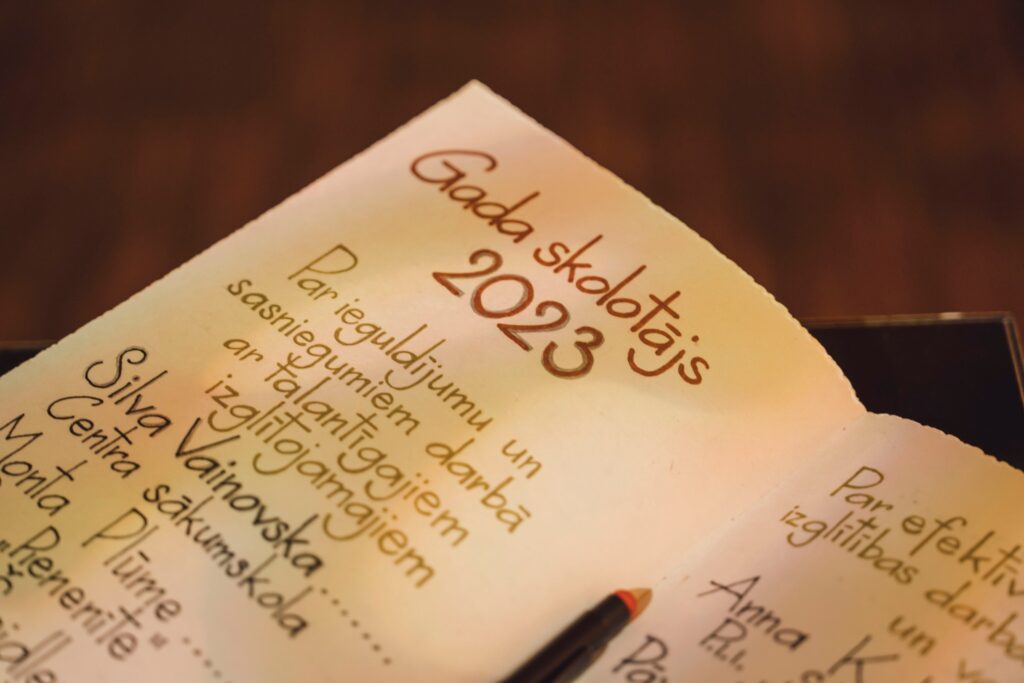 Gada skolotājs
2023
Par ieguldījumu un
sasniegumiem darbā
ar talantīgajiem
izglītojamajiem
Silva Vainovska......
Centra sākumskola
Monta Plūme.....
"Pienenīte"
Par efektīv
izglītības darba
un
Anna K
P.i.